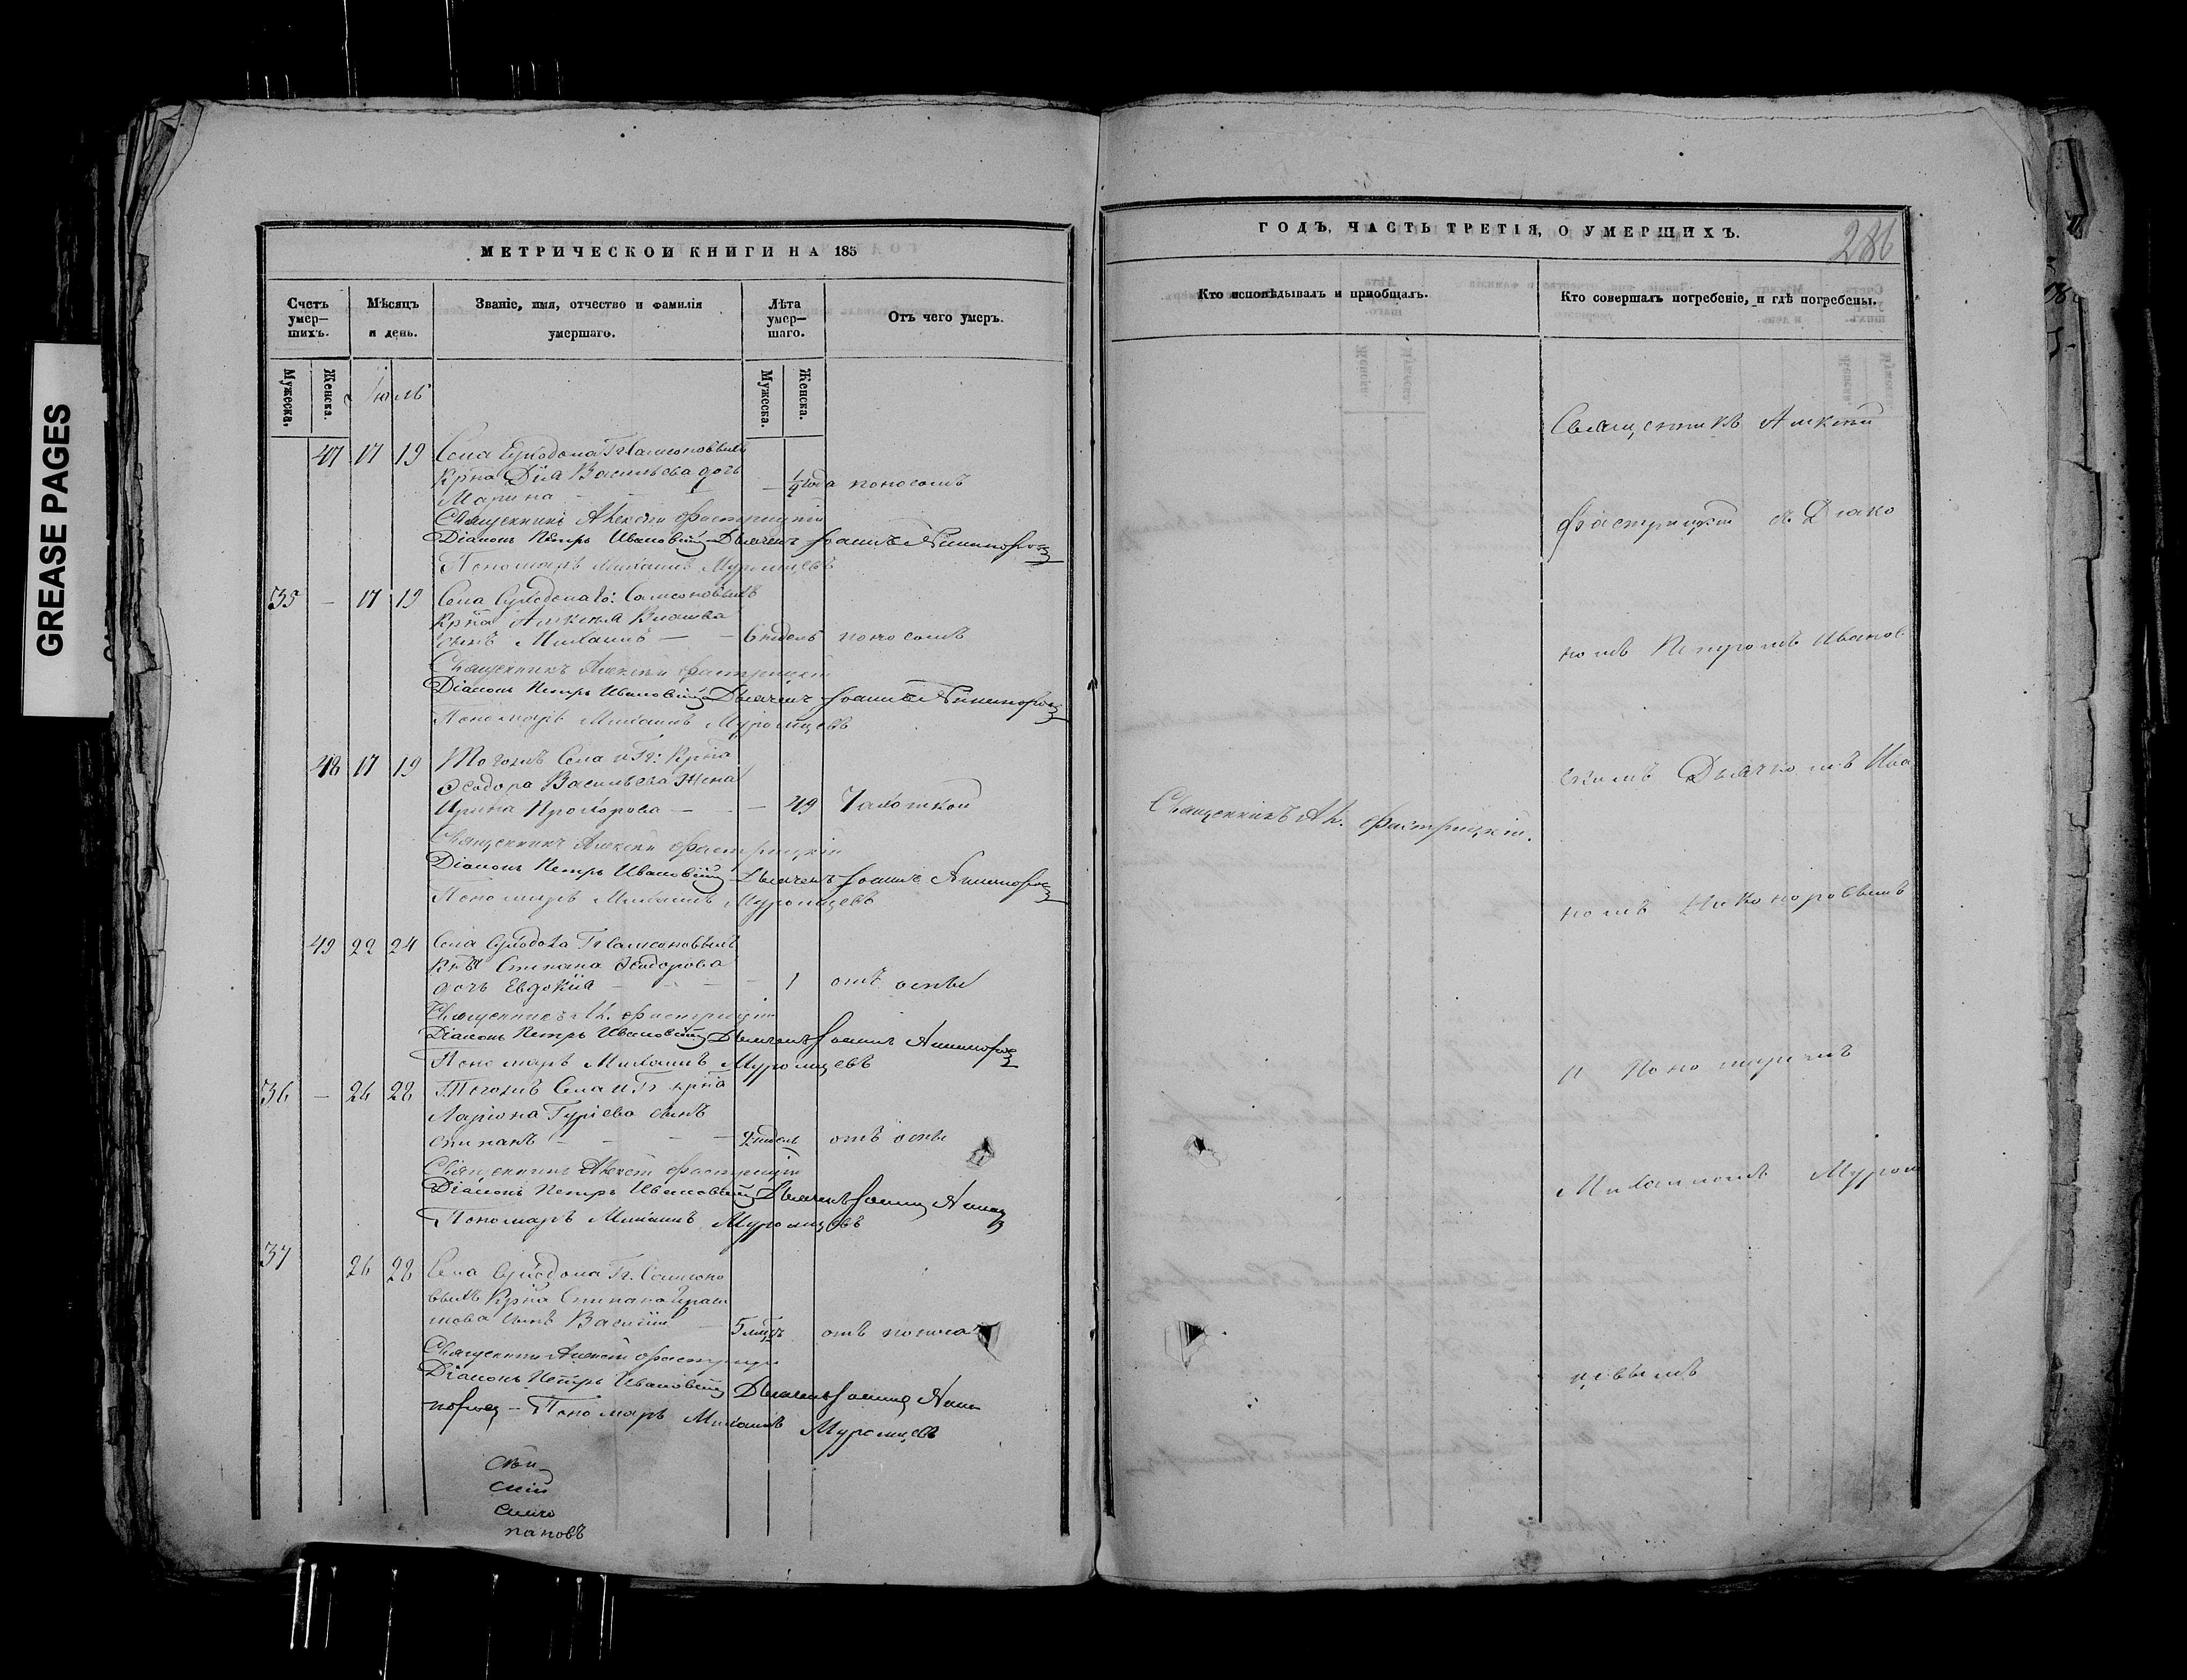 GREASE PAGES
МЕТРИЧЕСКОЙ КНИГИ НА 185
Счетъ умер—шихъ.
Мѣсяцъ и день.
Званіе, имя, отчество и фамилія умершаго.
Лѣта умер—шаго.
Отъ чего умеръ.
Мужеска.
Женска.
Мужеска.
Женска.
Іюль
47 17 19 Села Суходола Гг Самсоновыхъ
Крña Васильева дочь
Марина — — 1/4 года поносомъ
Священникъ Алексѣй Фастрицкій
Діаконъ Петръ Ивановскій Дьячекъ Іоаннъ Никаноровъ
Пономарь Михаилъ Муромцевъ
35 — 17 19 Села Суходола Гг: Самсоновыхъ
Крña Алексѣя
сынъ Михаилъ — — 6 недель поносомъ
Священникъ Алексѣй Фастрицкій
Діаконъ Петръ Ивановскій Дьячекъ Іоаннъ Никаноровъ
Пономарь Михаилъ Муромцевъ
48 17 19 Тогожъ Села и Гг: Крña
Ѳеодора Васильева Жена
Ирина Прохорова — — — 49 Чахоткой
Священникъ Алексѣй Фастрицкій
Діаконъ Петръ Ивановскій Дьячекъ Іоаннъ Никаноровъ
Пономарь Михаилъ Муромцевъ
49 22 24 Села Суходола Гг Самсоновыхъ
Степана Ѳеодорова
дочь Евдокія — — — 1 отъ оспы
Священникъ Ал. Фастрицкій
Діаконъ Петръ Ивановскій Дьячекъ Іоаннъ Никаноровъ
Пономарь Михаилъ Муромцевъ
36 — 26 28 Тогожъ Села и Гг крña
Ларіона Гуріева сынъ
Степанъ — — — 2 недель отъ оспы
Священникъ Алексѣй Фастрицкій
Діаконъ Петръ Ивановскій Дьячекъ Іоаннъ
Пономарь Михаилъ Муромцевъ
37 26 28 Села Суходола Гг. Самсоно
выхъ Крña Степана
сынъ Василій — 5 отъ поноса
Священникъ Алексѣй Фастрицкій
Діаконъ Петръ Ивановскій Дьячекъ Іоаннъ Ника
норовъ — Пономарь Михаилъ Муромцевъ
пановъ
ГОДЪ, ЧАСТЬ ТРЕТІЯ, О УМЕРШИХЪ.
286
Кто исповѣдывалъ и пріобщалъ.
Кто совершалъ погребеніе, и гдѣ погребены.
Священникъ Ал. Фастрицкій.
Священникъ Алексѣй
Фастрицкій съ Діако
номъ Петромъ Иванов
скимъ Дьячкомъ Иоа
номъ Никоноровымъ
и Пономаремъ
Михаиломъ Муром
цевымъ